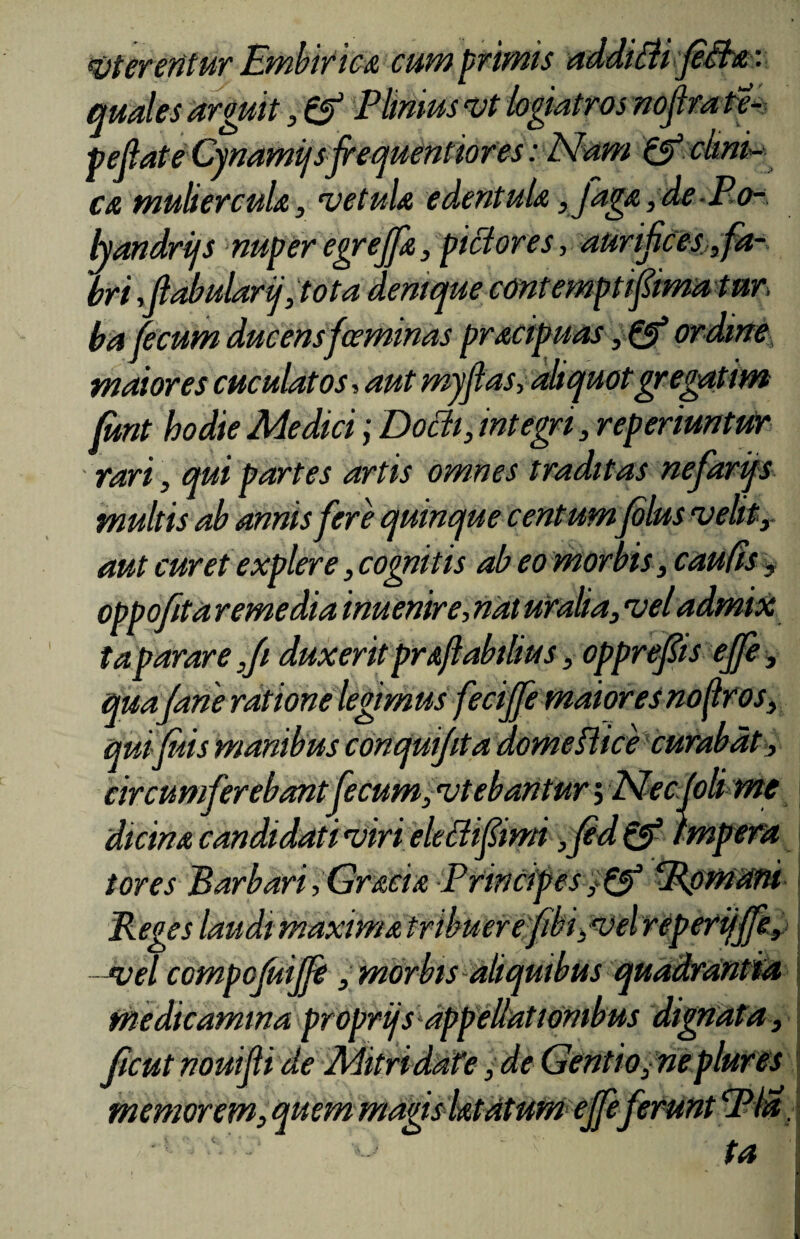 vterentur Embiricæ cum primis addicti sectæ:
quales arguit, & Plinius vt logiatros nostra te-
pestate Cynamijs frequentiores: Nam & clini-
cæ mulierculæ, vetulæ edentulæ, sagæ, de Po-
lyandrijs nuper egressæ, pictores, aurifices, fa-
bri, stabularij, tota denique contemptißima tur
ba secum ducens fœminas præcipuas, & ordine
maiores cuculatos, aut mystas, aliquot gregatim
sunt hodie Medici; Docti, integri, reperiuntur
rari, qui partes artis omnes traditas nefarijs
multis ab annis fere quinque centum solus velit,
aut curet explere, cognitis ab eo morbis, causis,
opposita remedia inuenire, naturalia, vel admix
ta parare, si duxerit præstabilius, oppreßis esse,
qua sane ratione legimus fecisse maiores nostros,
qui suis manibus conquisita domestice curabāt,
circumferebant secum, vtebantur; Nec soli me
dicinæ candidati viri electißimi, sed & Impera
tores Barbari, Græciæ Principes, & Romani
Reges laudi maximæ tribuere sibi, vel reperijsse,
vel composuisse, morbis aliquibus quadrantia
medicamina proprijs appellationibus dignata,
sicut nouisti de Mitridate, de Gentio, ne plures
memorem, quem magis lætatum esse ferunt Pla
ta